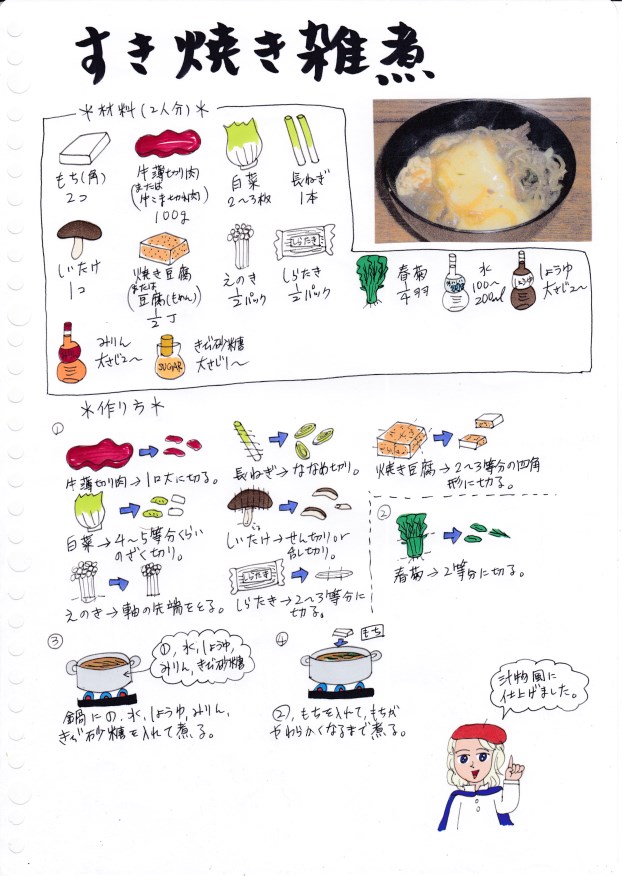 すき焼き雑煮
*材料(2人分)*
もち(角)
2コ
牛薄切り肉
(または
牛こま切れ肉)
100g
白菜
2〜3枚
長ねぎ
1本
しいたけ
1コ
焼き豆腐
(または
豆腐(もめん))
1/2丁
えのき
1/2パック
しらたき
しらたき
1/2パック
春菊
1/4羽
水
100〜
200ml
しょうゆ
しょうゆ
大さじ2〜
みりん
大さじ2〜
SUGAR
きび砂糖
大さじ1〜
*作り方*
①
牛薄切り肉→1口大に切る。
長ねぎ→ななめ切り。
焼き豆腐→2〜3等分の四角
形に切る。
白菜→4〜5等分くらい
のざく切り。
しいたけ→せん切りor
石し切り。
えのき→軸の先端をとる。
しらたき
しらたき→2〜3等分に
切る。
②
春菊→2等分に切る。
③
①,水,しょうゆ,
みりん,きび砂糖
鍋に①,水,しょうゆ,みりん,
きび砂糖を入れて煮る。
④
もち
②,もちを入れて,もちが
やわらかくなるまで煮る。
汁物風に
仕上げました。